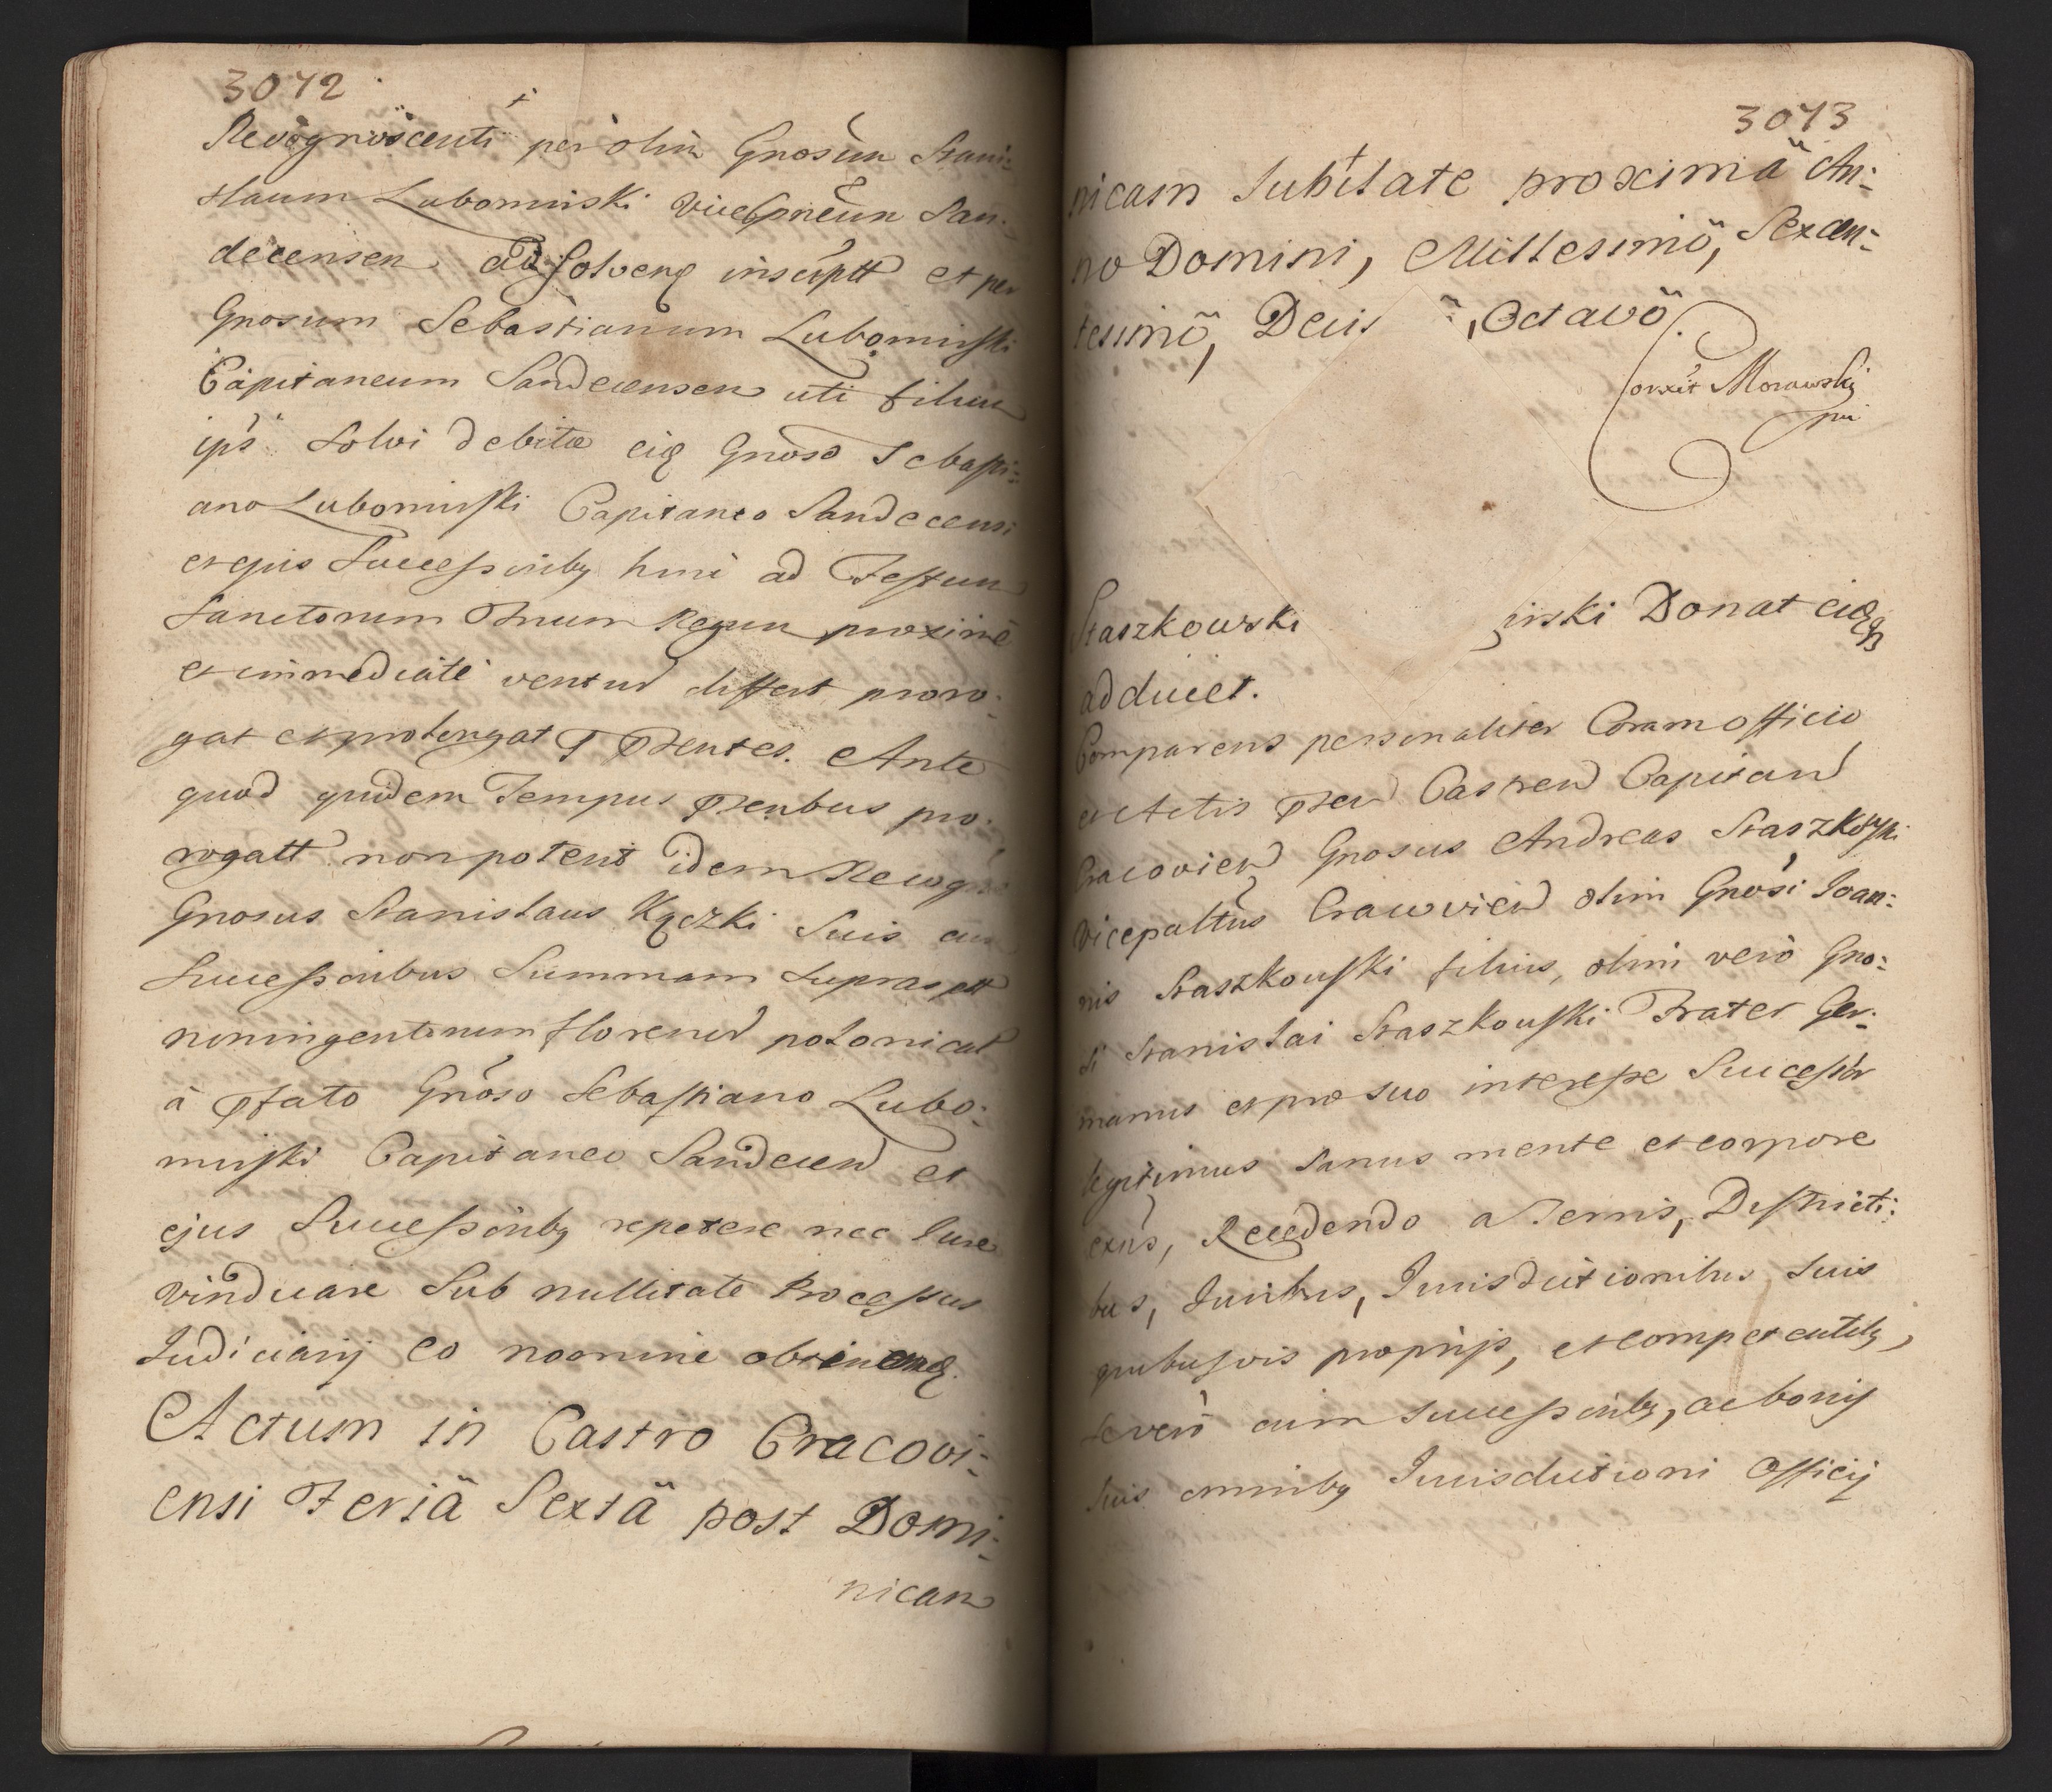 3072
Recognoscenti per olim Gnosum Stani:
slaum Lubomirski Vicesprcum San:
decensem ad solvend inscriptt et per
Gnosum Sebastianum Lubomirski
Capitaneum Sandecensem uti filium
ips solvi debitae eidq Gnoso Sebasti:
ano Lubomirski Capitaneo Sandecensi
et ejus Successoribq hinc ad Festum
Sanctorum Trium Regum proxime
et immediate ventur differt proro:
gat et prolongat p pntes. Ante
quod quidem Tempus pntibus pro:
rogatt non potent idem Recogno
Gnosus Stanislaus Kączki Suis cum
Successoribus Summam suprasptt
noningentorum florenor polonical
à pfato Gnoso Sebastiano Lubo:
mirski Capitaneo Sandecen et
ejus Successoribq repetere nec Iure
Vindicare Sub nullitate Processus
Iudiciarij eo nomine obtinend.
Actum in Castro Cracovi:
ensi Feriä Sextä post Domi:
nicam
3073
nicam Iubilate proximä An:
no Domini, Millesimö, Sexcen:
tesimö, Deci , Octavö.
Corexit Morawski
mp
Staszkowski irski Donat eidq
adducet.
Comparens personaliter Coram Officio
et Actis pten Castren Capitan
Cracovien Gnosus Andreas Staszkowski
Vicepalttus Cracovien olim Gnosi Ioan:
nis Staszkowski filius, olim vero Gno:
si Stanislai Staszkowski Frater Ger:
manus et pro suo interesse Successor
legitimus sanus mente et corpore
exns, Recedendo a Terris, Districti:
bus, Iuribus, Iurisdictionibus suis
quibusvis proprijs, et competentibq,
se vero cum successoribq, ac bonis
suis omnibq Iurisdictioni Officij